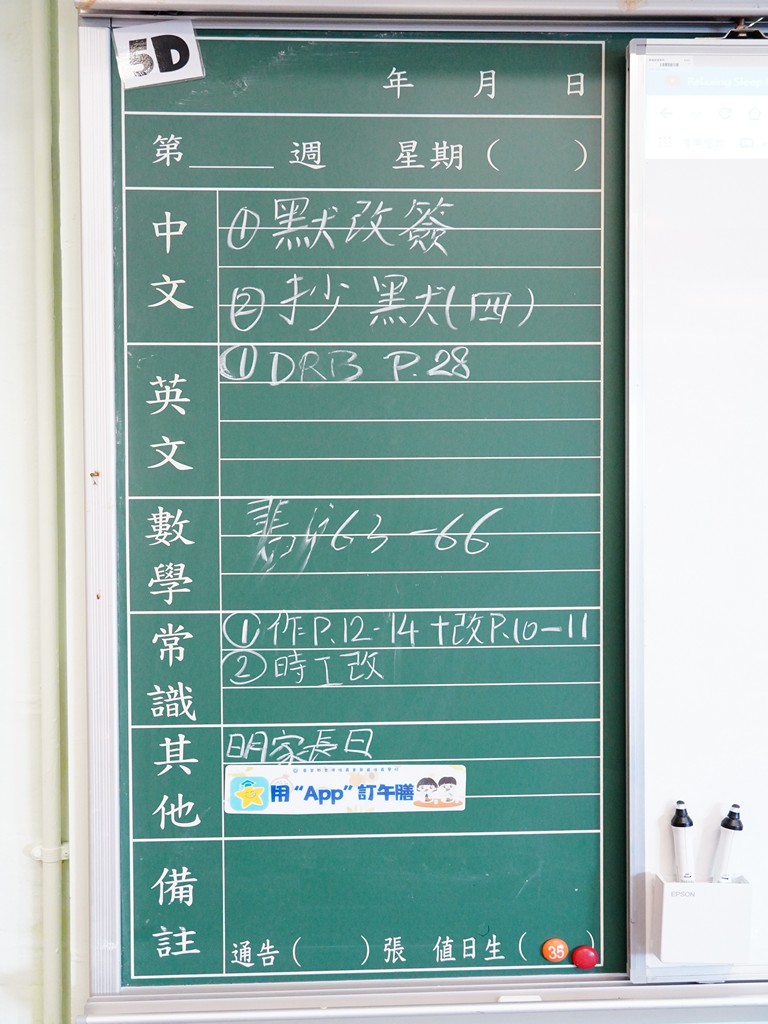 5D
年 月 日
第____週 星期( )
中文
①默改簽
②抄默(四)
英文
①DRB P.28
數學
63-66
常識
①作P.12-14+改P.10-11
②時工改
其他
明家長日
用“App”訂午膳
備註
通告( )張 值日生( 35 )
EPSON